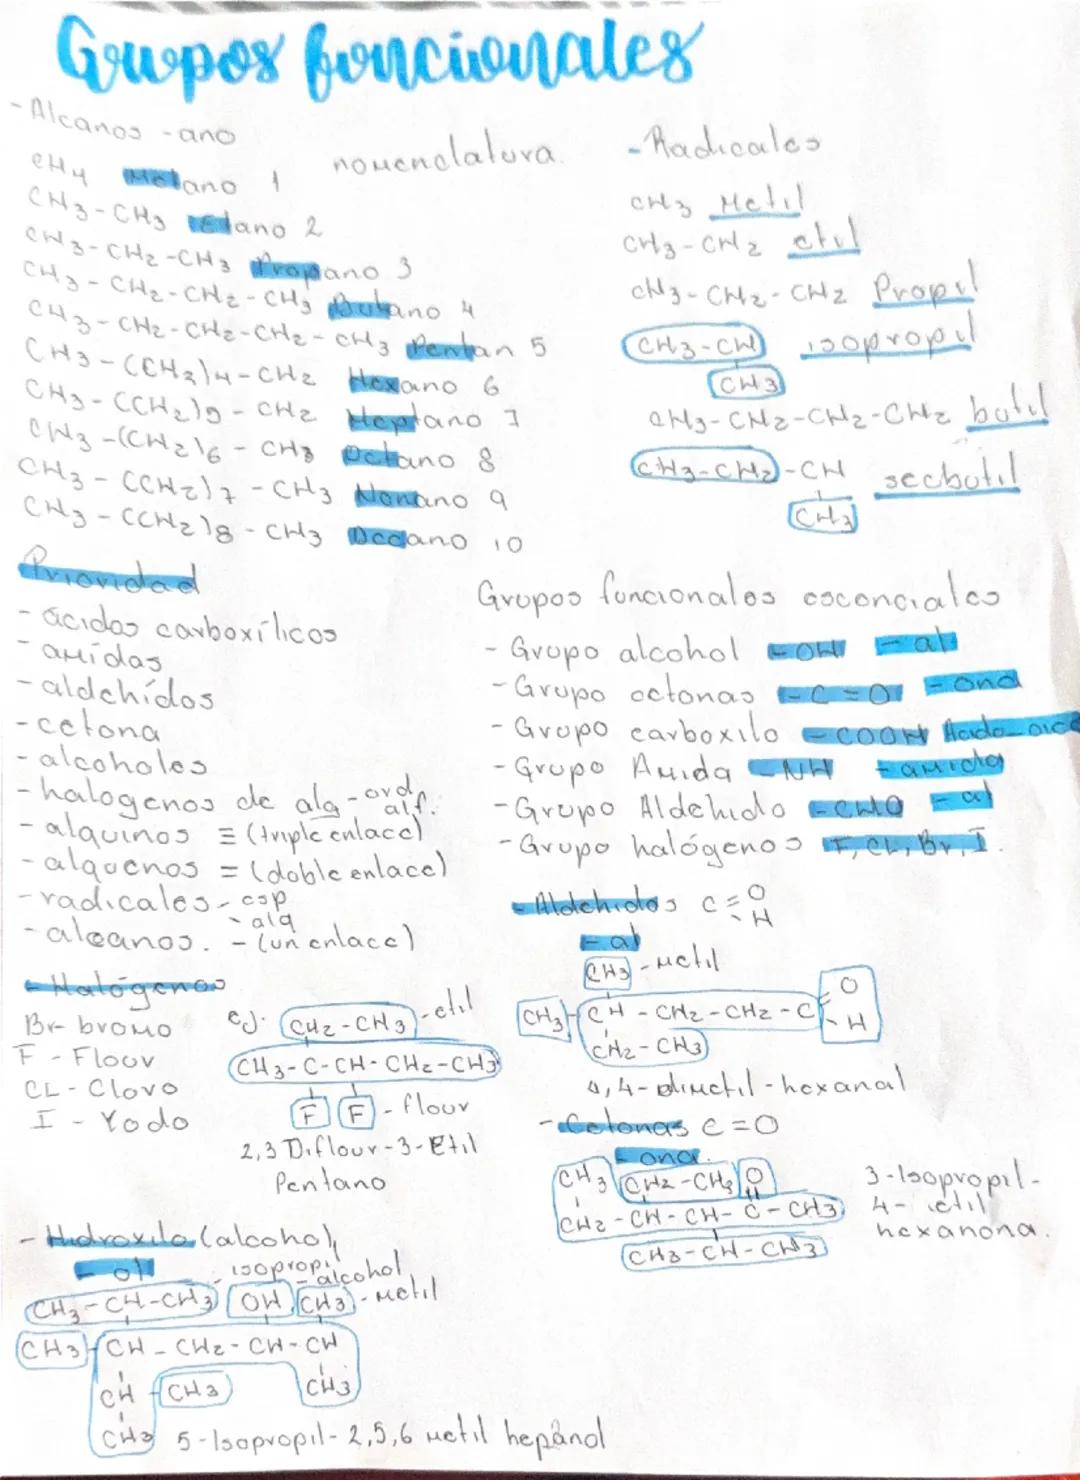 Grupos funcionales
- Alcanos -ano
nomenclatura.
CH4 Metano 1
CH3-CH3 Etano 2
CH3-CH2-CH3 Propano 3
CH3-CH2-CH2-CH3 Butano 4
CH3-CH2-CH2-CH2-CH3 Pentan 5
CH3-(CH2)4-CH2 Hexano 6
CH3-(CH2)5-CH2 Heptano 7
CH3-(CH2)6-CH3 Octano 8
CH3-(CH2)7-CH3 Nonano 9
CH3-(CH2)8-CH3 Decano 10
- Radicales
CH3 Metil
CH3-CH2 etil
CH3-CH2-CH2 Propil
CH3-CH isopropil
CH3
CH3-CH2-CH2-CH2 butil
CH3-CH2-CH secbutil
CH3
Prioridad
- ácidos carboxílicos
- amidas
- aldehídos
- cetona
- alcoholes
- halogenos de alg-ord alf.
- alquinos ≡ (triple enlace)
- alquenos = (doble enlace)
- radicales - esp
- alg
- alcanos. - (un enlace)
Grupos funcionales esenciales
- Grupo alcohol -OH
- Grupo cetonas -C=O -ona
- Grupo carboxilo -COOH Acido-oico
- Grupo Amida -NH -amida
- Grupo Aldehido -CHO -al
- Grupo halógenos F, CL, Br, I.
- Halógenos
Br- bromo
F - Flour
CL - Cloro
I - Yodo
ej. CH2-CH3 -etil
CH3-C-CH-CH2-CH3
F F - flour
2,3 Diflour-3-Etil
Pentano
- Aldehidos C=O
-H
-al
CH3 -metil
CH3 CH-CH2-CH2-C=O
-H
CH2-CH3
4,4-dimetil-hexanal
- Cetonas C=O
-ona.
CH3 CH2-CH3 O
CH2-CH-CH-C-CH3
CH3-CH-CH3
3-Isopropil-
4-etil
hexanona.
- Hidroxilo (alcohol)
-ol
isopropil
-alcohol
CH3-CH-CH3 OH CH3 -Metil
CH3 CH-CH2-CH-CH
CH CH3 CH3
CH3
5-Isopropil-2,5,6 metil hepanol